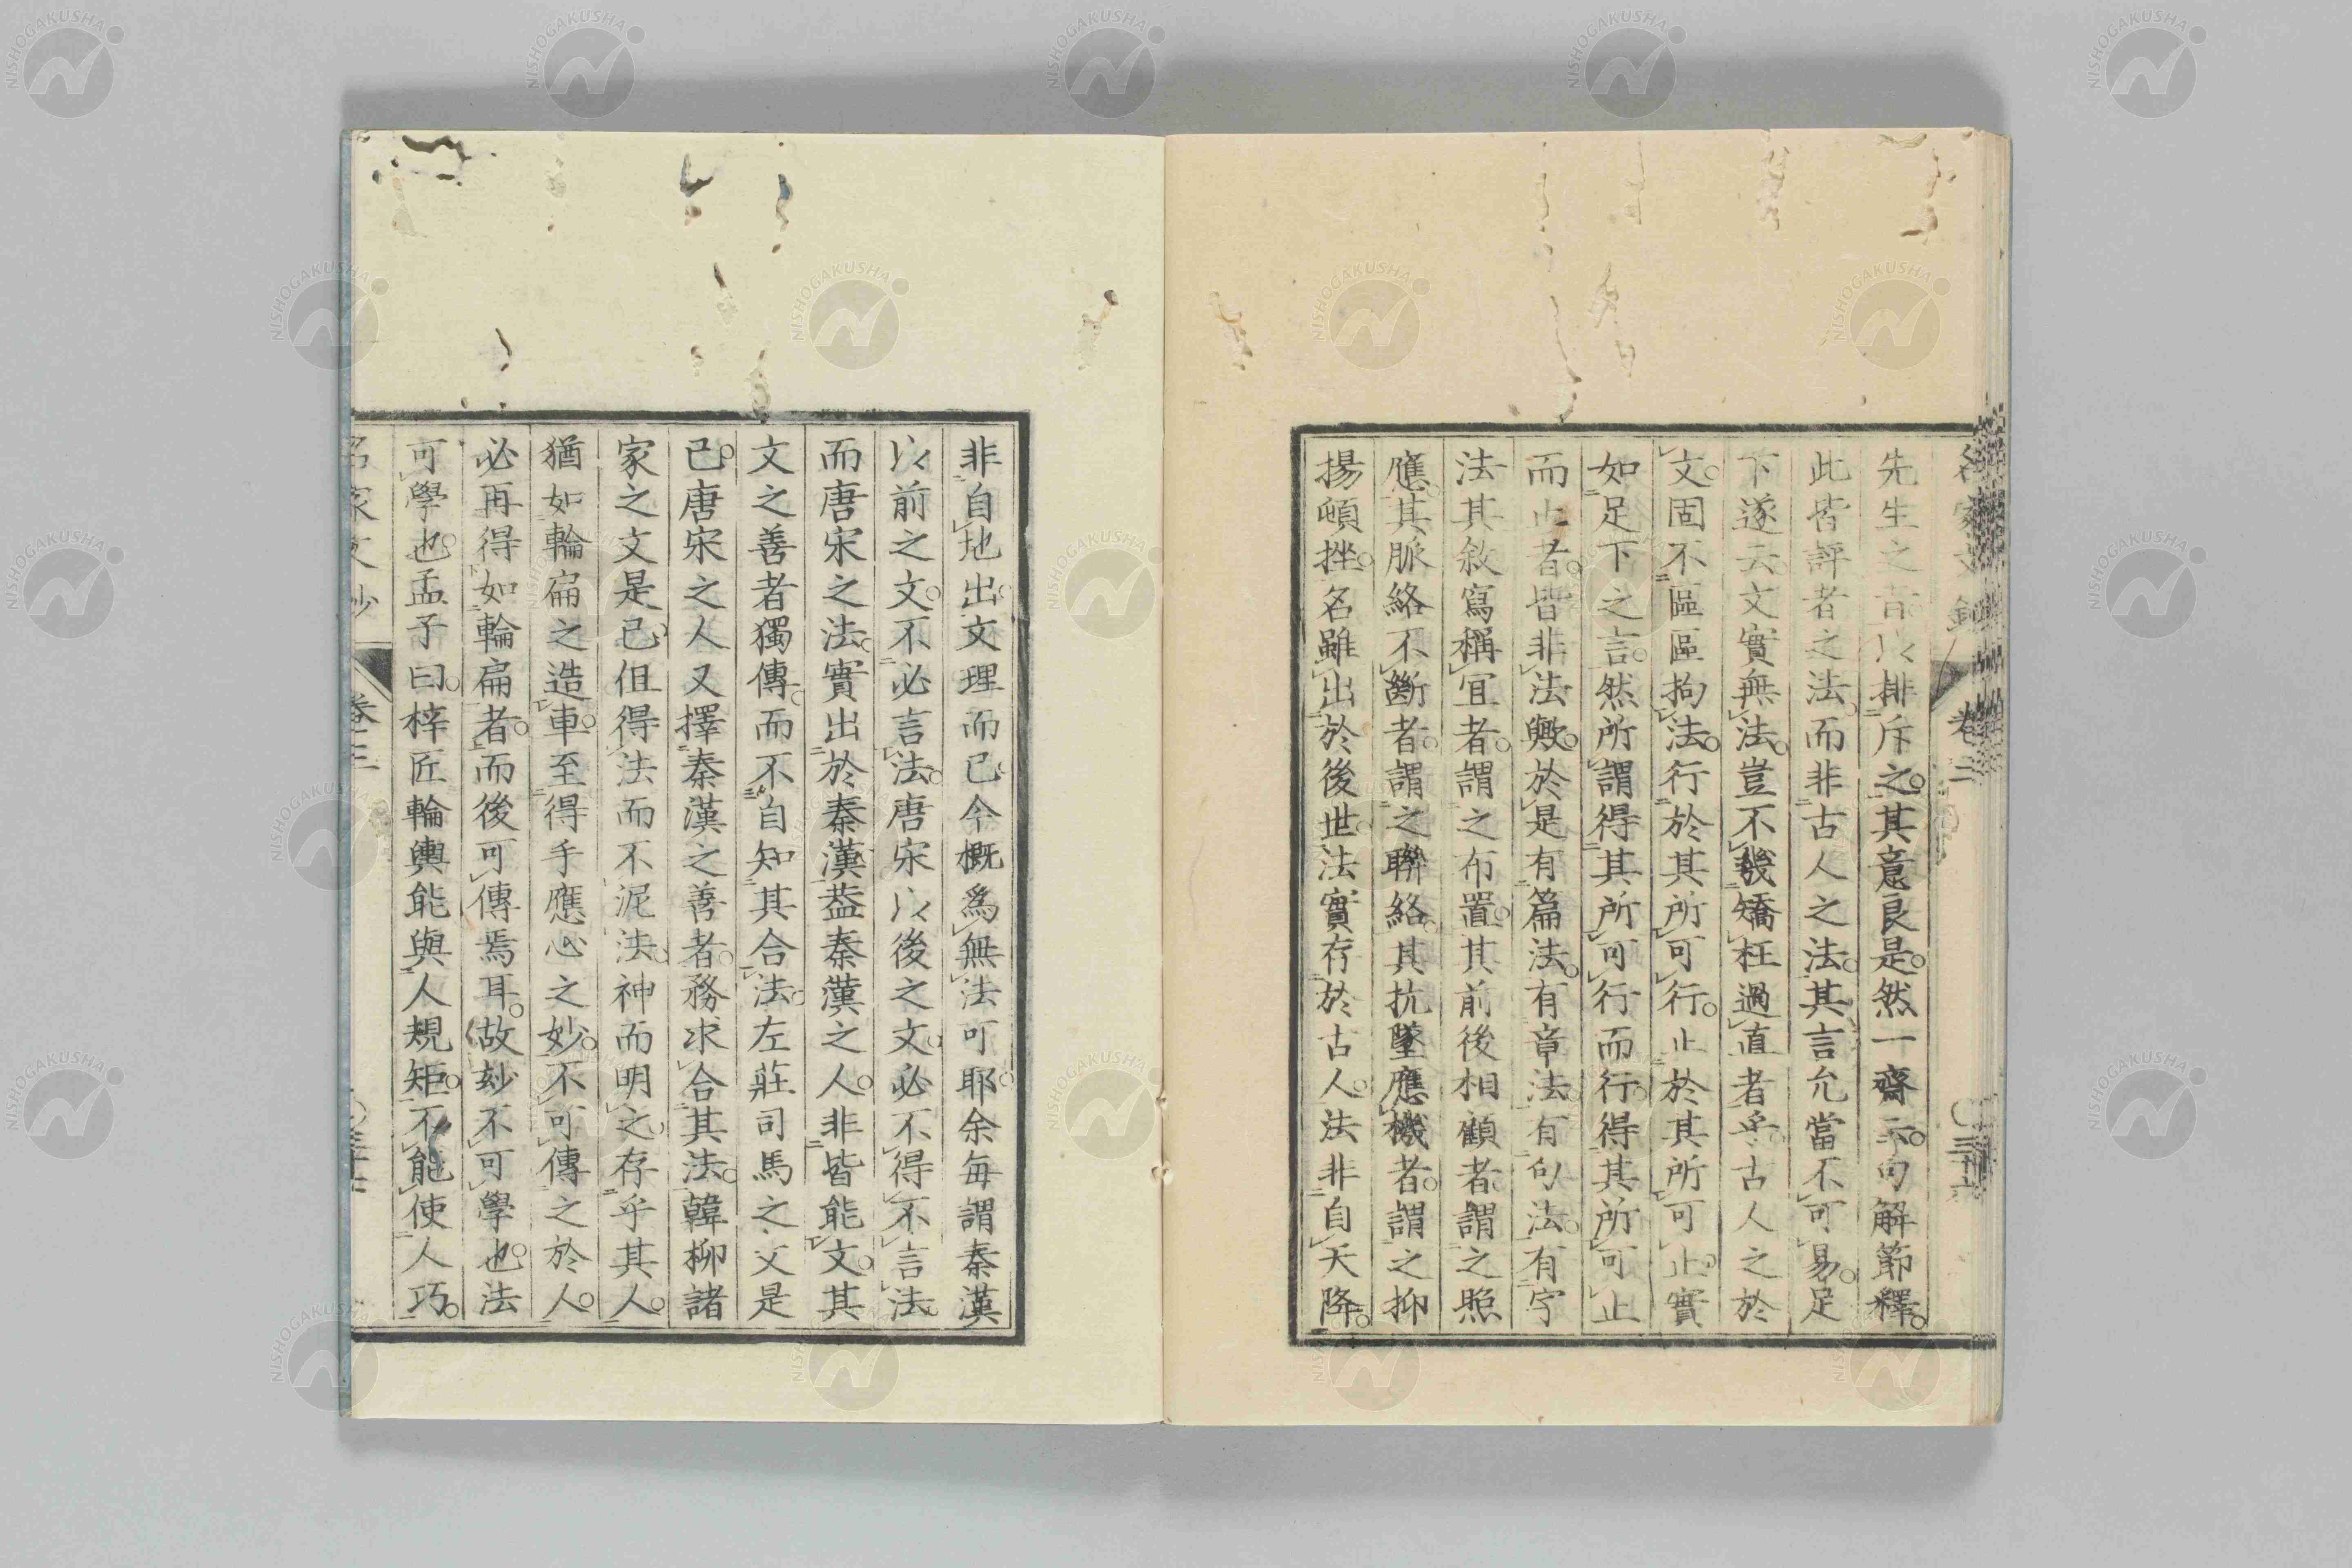 先生之言以排斥之其意良是然一齋示句解節釋
此皆評者之法而非古人之法其言允當不可易足
下遂云文實無法豈不幾矯枉過直者乎古人之於
文固不區區拘法行於其所可行止於其所可止實
如足下之言然所謂得其所可行而行得其所可止
而止者皆非法歟於是有篇法有章法有句法有字
法其敘寫稱宜者謂之布置其前後相顧者謂之照
應其脈絡不斷者謂之聯絡其抗墜應機者謂之抑
揚頓挫名雖出於後世法實存於古人法非自天降
非自地出文理而已今概為無法可耶余每謂秦漢
以前之文不必言法唐宋以後之文必不得不言法
而唐宋之法實出於秦漢蓋秦漢之人非皆能文其
文之善者獨傳而不自知其合法左莊司馬之文是
已唐宋之人又擇秦漢之善者務求合其法韓柳諸
家之文是已但得法而不泥法神而明之存乎其人
猶如輪扁之造車至得手應心之妙不可傳之於人
必再得如輪扁者而後可傳焉耳故妙不可學也法
可學也孟子曰梓匠輪輿能與人規矩不能使人巧
名家文鈔 卷三
NISHOGAKUSHA